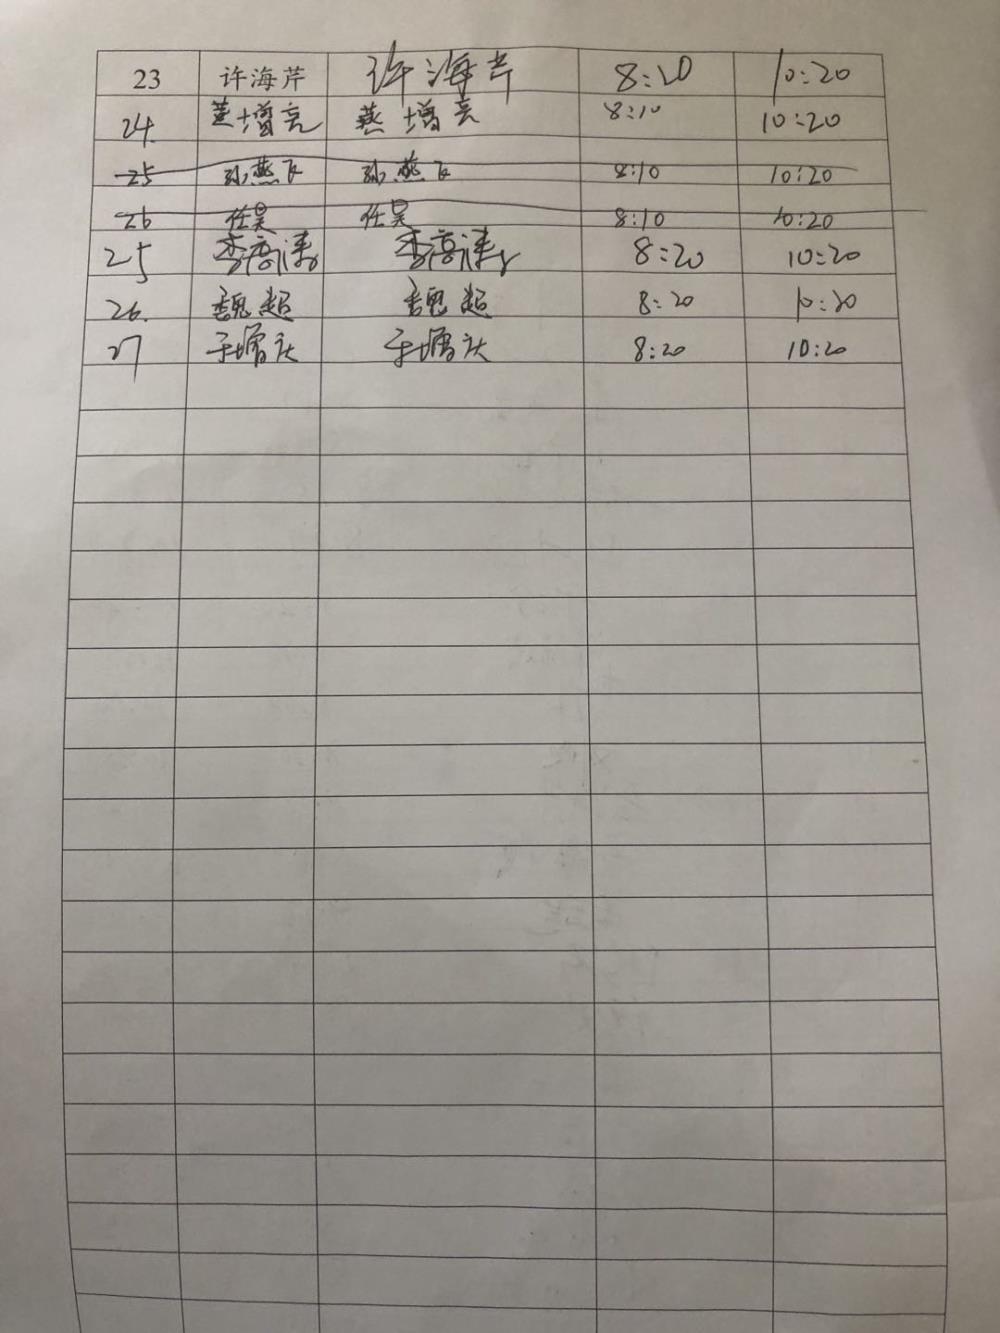 23 许海芹 许海芹 8:20 10:20
24. 增亮 增亮 8:10 10:20
25 孙燕飞 孙燕飞 8:10 10:20
26 任昊 任昊 8:10 10:20
25 李高涛 李高涛 8:20 10:20
26. 魏超 魏超 8:20 10:20
27 于增庆 于增庆 8:20 10:20